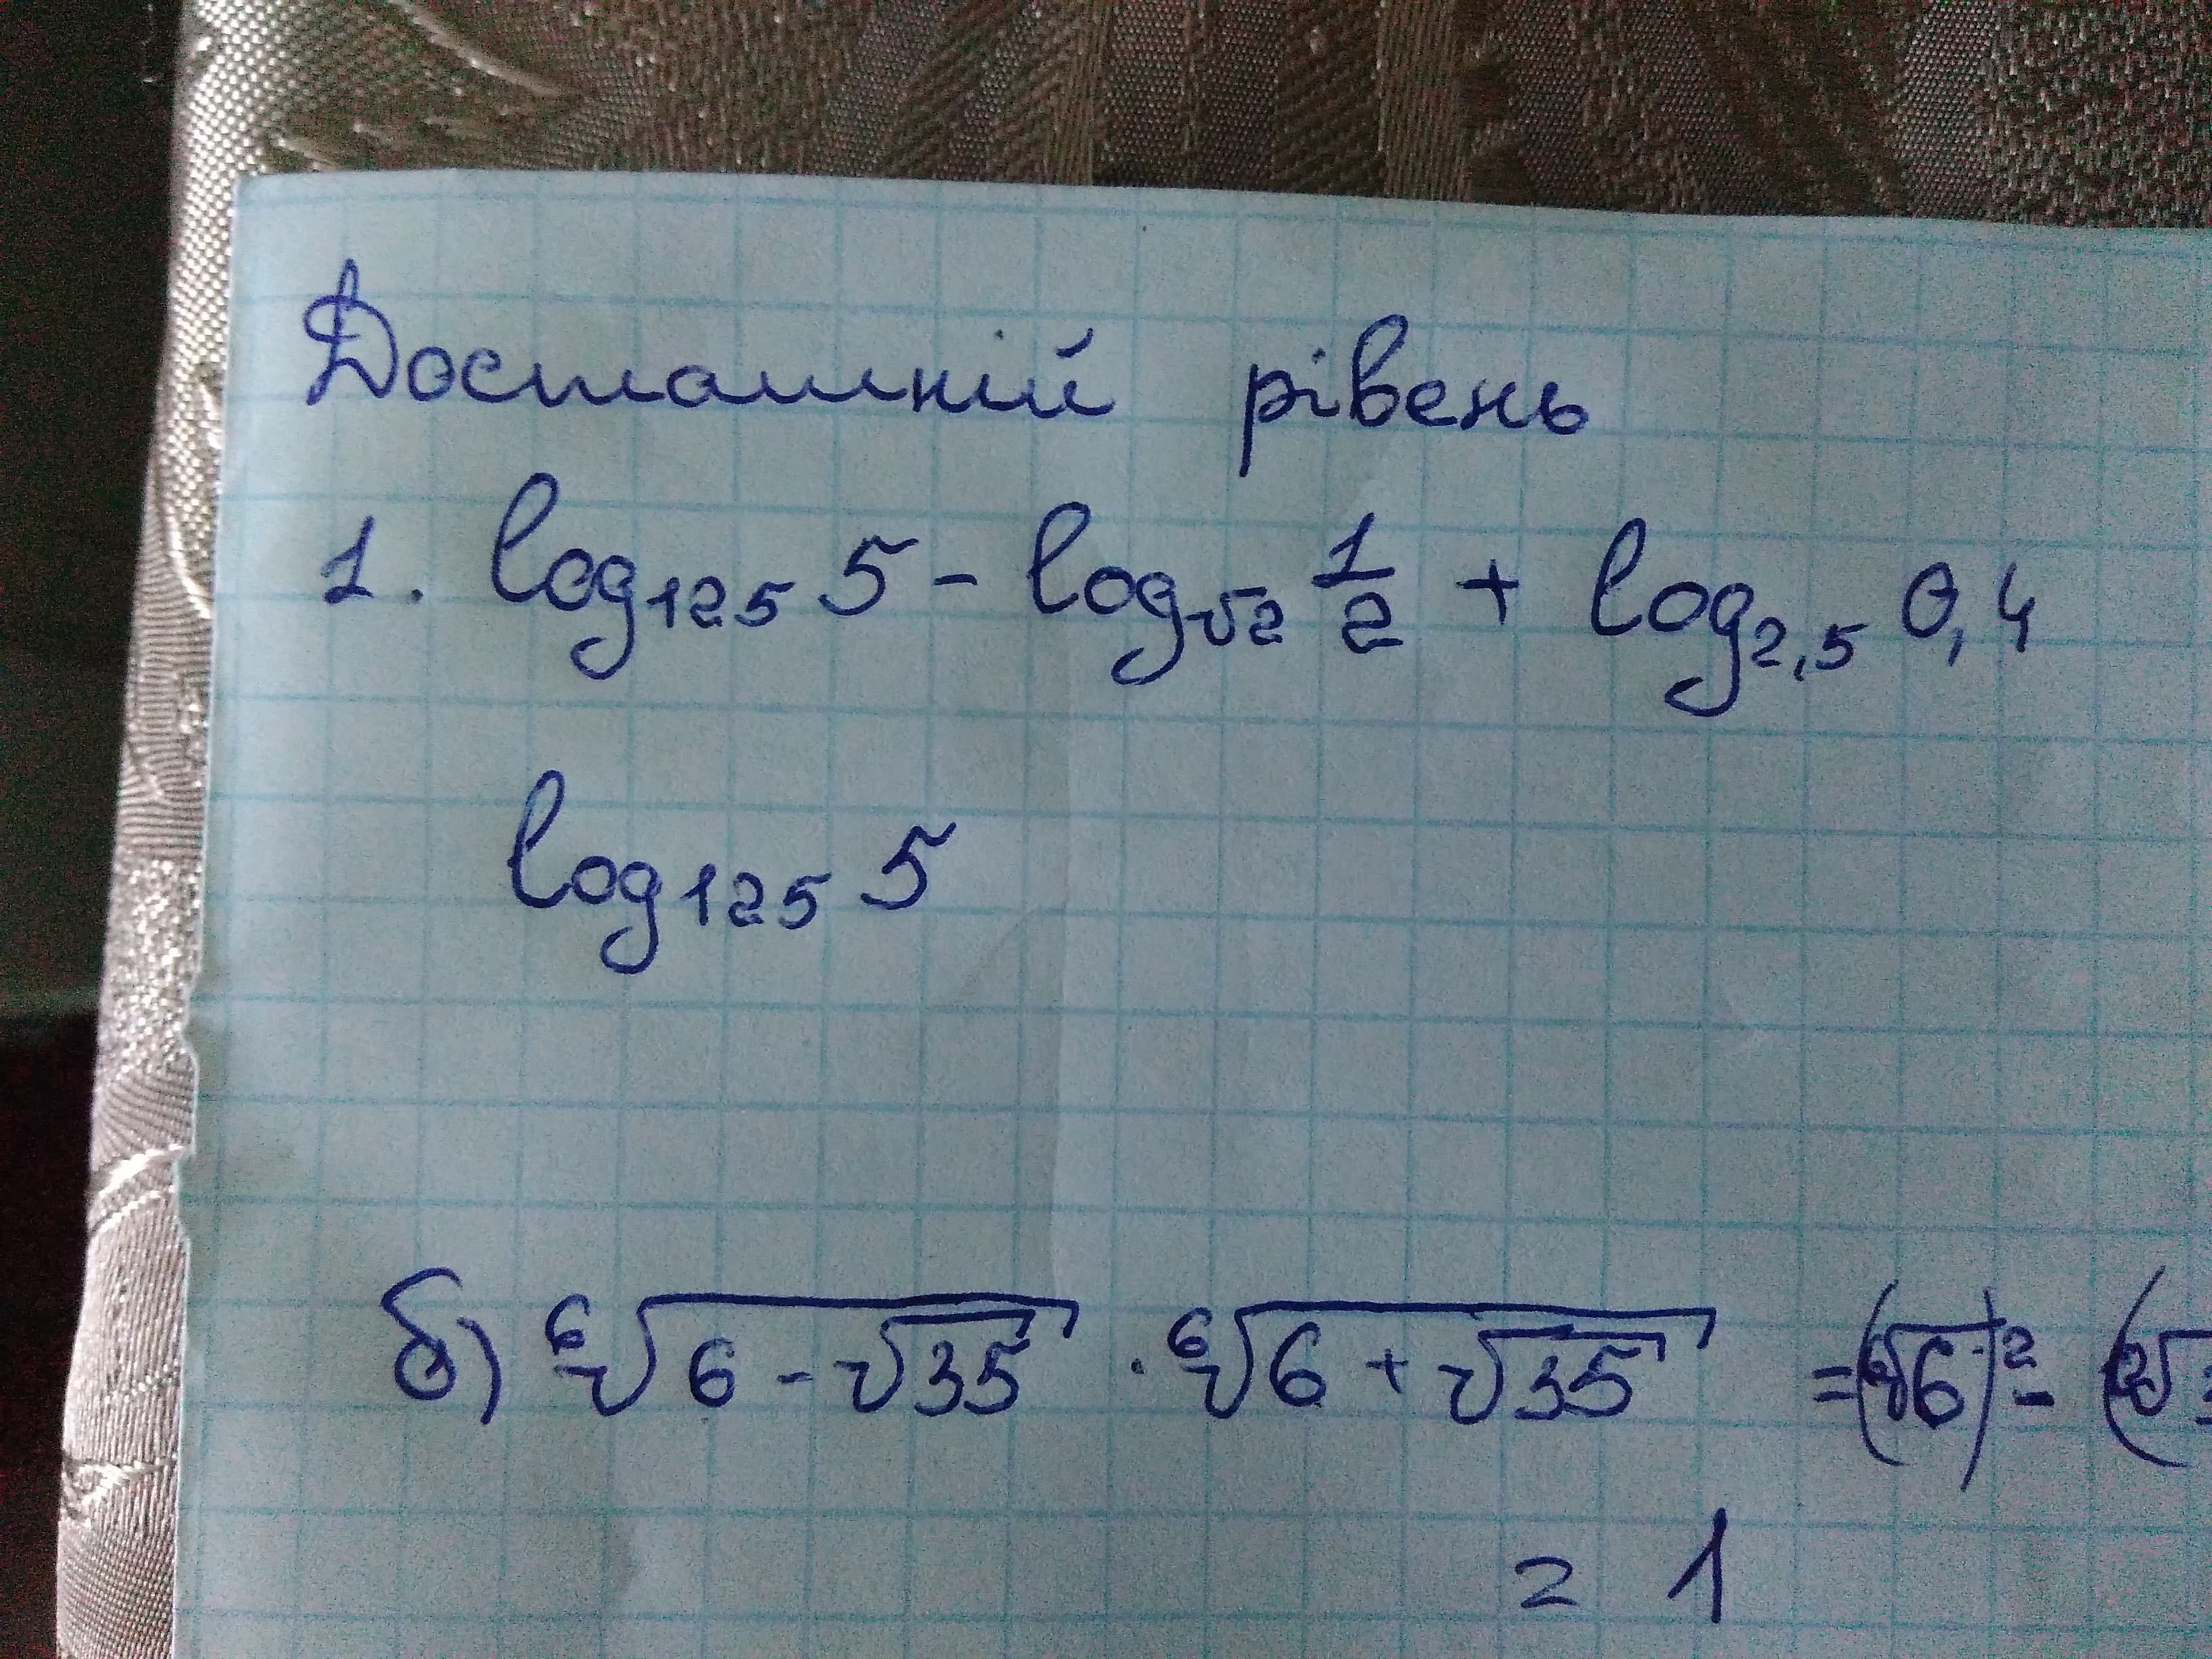 Достатній рівень
1. log₁₂₅ 5 - log_√2 1/2 + log₂,₅ 0,4
log₁₂₅ 5
б) ⁶√(6 - √35) · ⁶√(6 + √35) = (√6)² - (
= 1